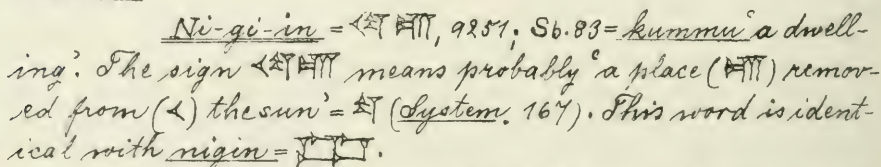 Ni-gi-in = , 9251; Sb. 83 = kummu ‘a dwell-
ing’. The sign means probably ‘a place ( ) remov-
ed from (𒌋) the sun’ = (System. 167). This word is ident-
ical with nigin = .